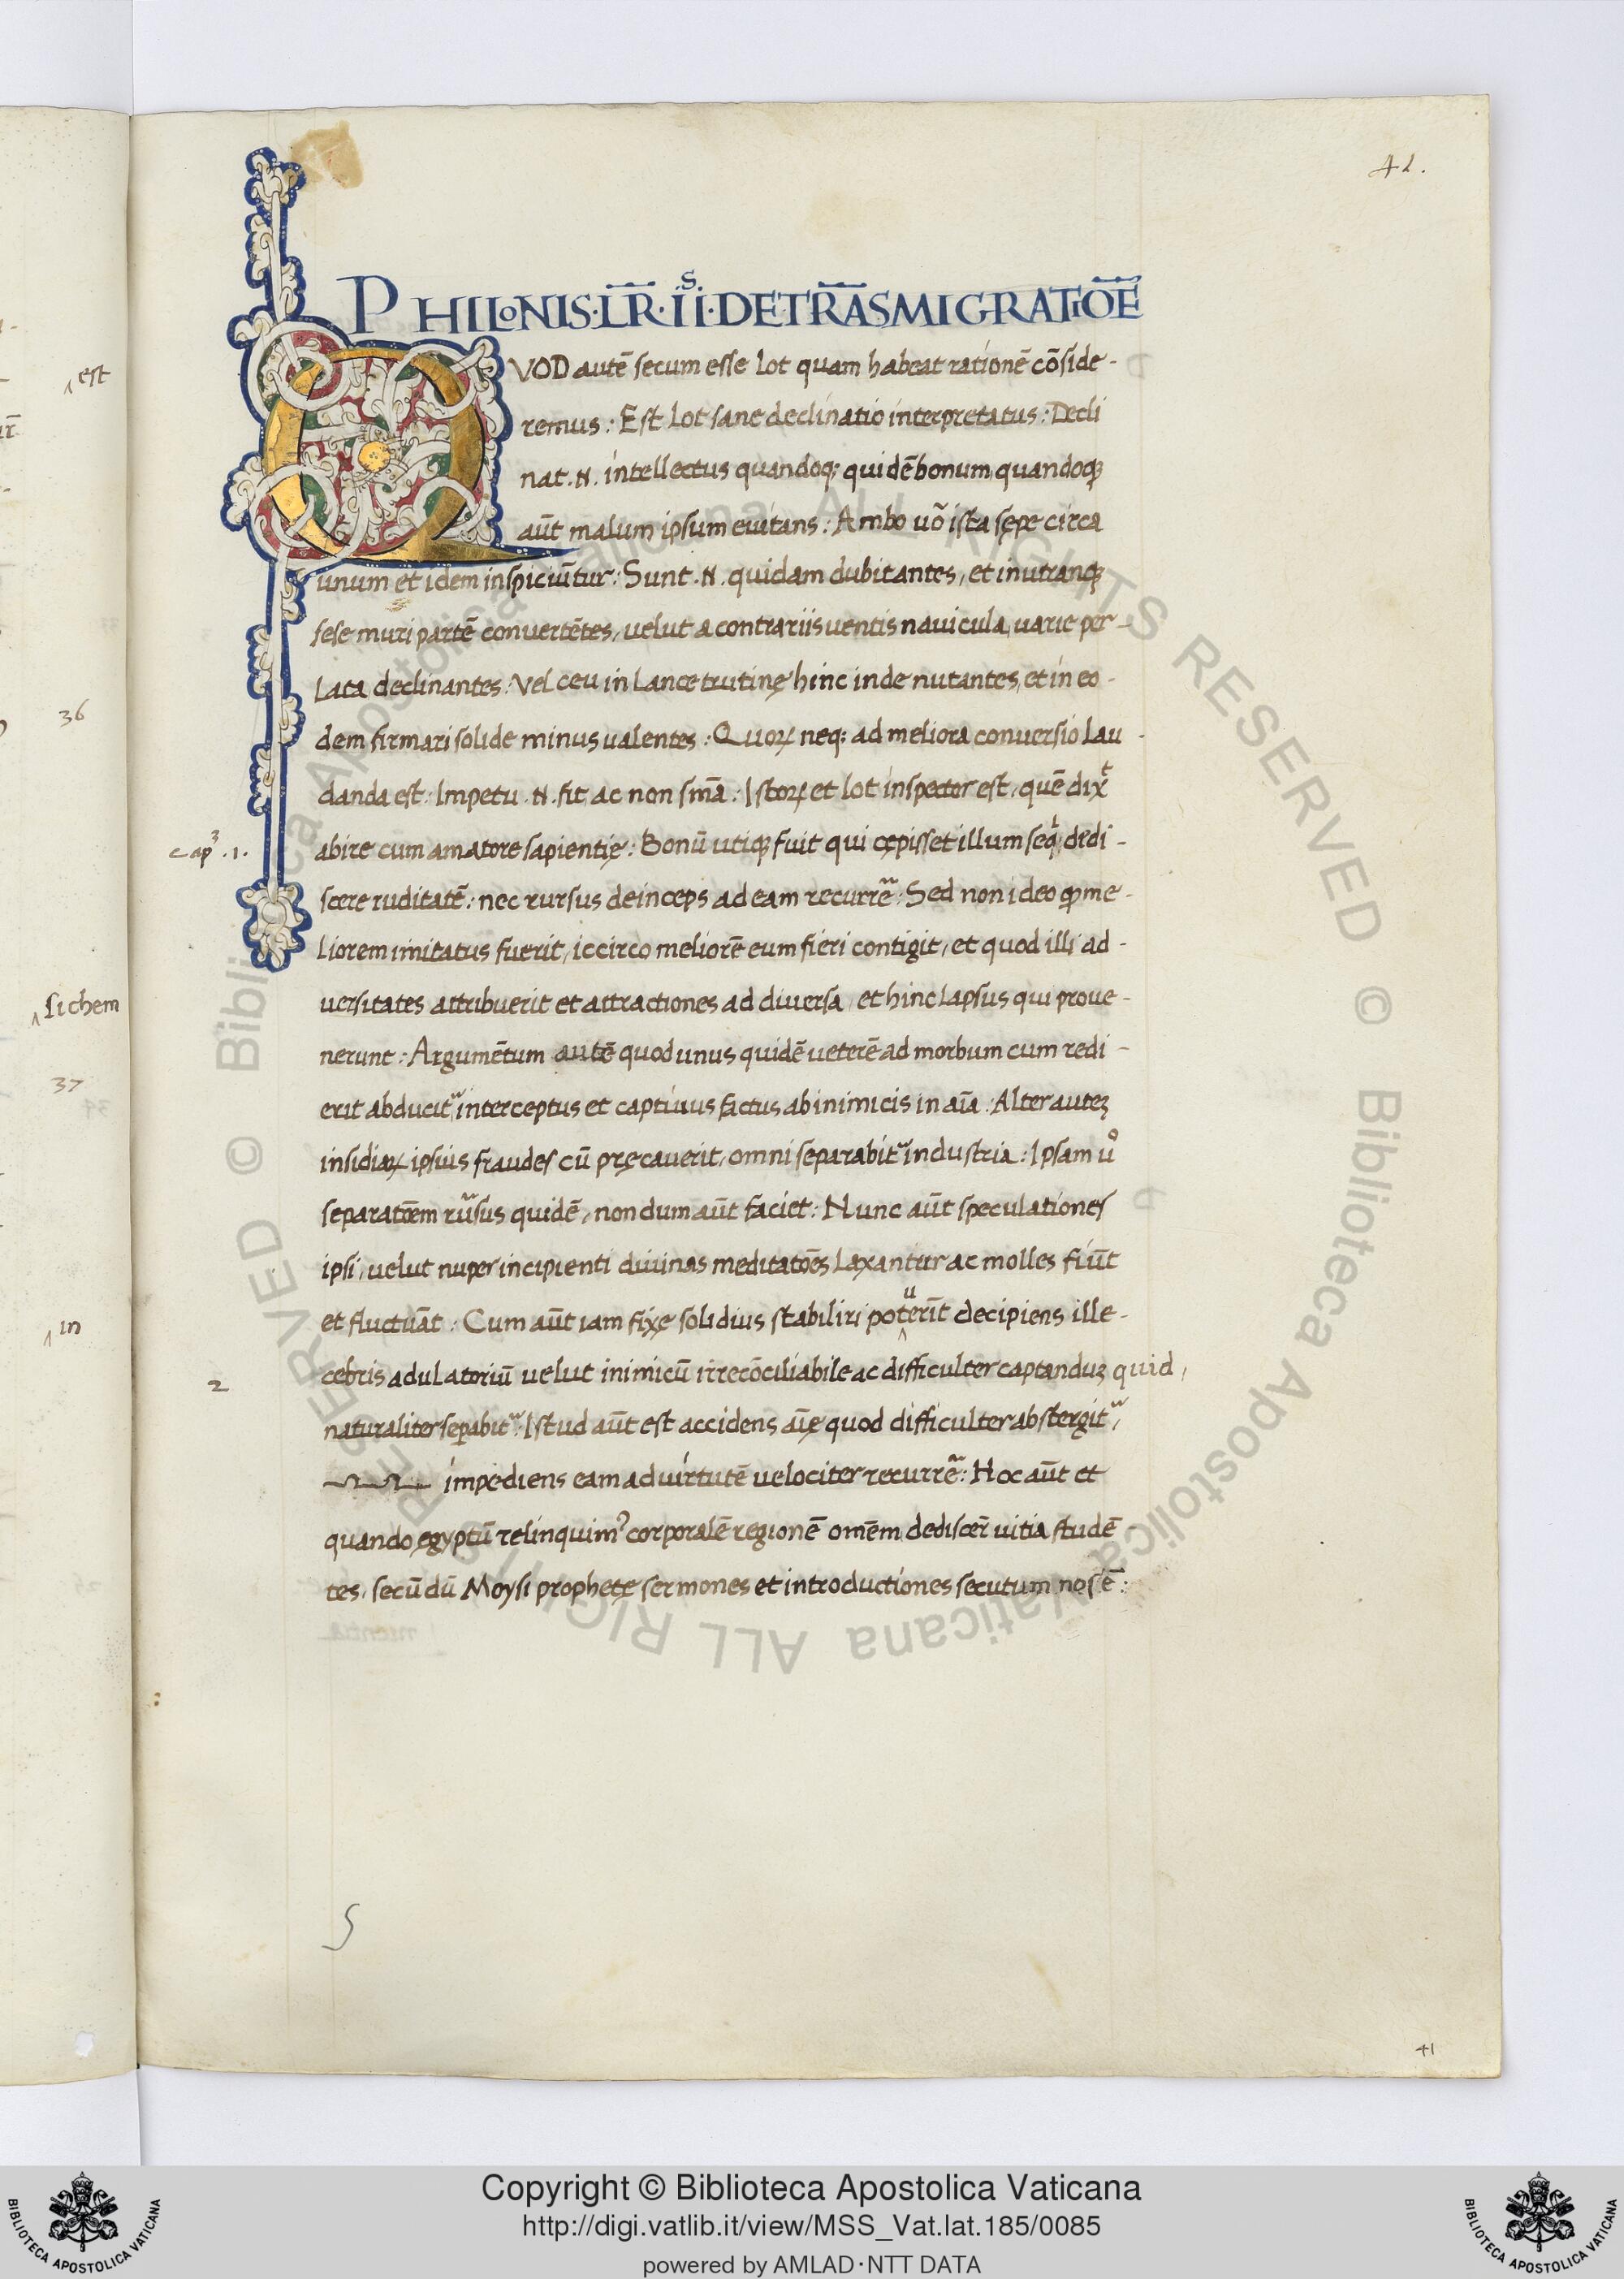 41.
PHILONIS·L̅R̅·IIˢ·DE TRA̅SMIGRATIO̅E
QVOD autē secum esse Lot quam habeat rationē cōside-
remus: Est Lot sane declinatio interpretatus: Decli
nat .N. intellectus quandoq; quidē bonum, quandoq;
aūt malum ipsum euitans: Ambo uō ista sępe circa
unum et idem inspiciūtur: Sunt .N. quidam dubitantes, et in utranq;
sese muri partē convertētes, velut a contrariis ventis navicula, uarie per-
Lata declinantes: Vel ceu in Lance trutinę hinc inde nutantes, et in eo-
dem firmari solide minus ualentes: Quoꝝ neq; ad meliora conuersio Lau-
danda est: Impetu .N. fit ac non sm̄a: Istoꝝ et Lot inspector est, quē dixᵗ
cap³.1.
abire cum amatore sapientię: Bonū utiq; fuit qui cępisset illum seqⁱ, dedi-
scere ruditatē: nec rursus deinceps ad eam recurrē: Sed non ideo ꝙ me-
Liorem imitatus fuerit, iccirco meliorē eum fieri contigit, et quod illi ad-
versitates attribuerit et attractiones ad diuersa, et hinc Lapsus qui proue-
nerunt: Argumētum autē quod unus quidē ueterē ad morbum cum redi-
erit abducit᷑ interceptus et captiuus factus ab inimicis in aīa: Alter auteꝫ
insidiaꝝ ipsius fraudes cū pręcauerit, omni separabit᷑ industria: Ipsam uº
separatōem rūsus quidē, non dum aūt faciet: Nunc aūt speculationes
ipsi, uelut nuper incipienti diuinas meditatōes Laxantur ac molles fiūt
et fluctuāt: Cum aūt iam fixe solidius stabiliri potuerīt decipiens ille-
cebris adulatoriū uelut inimicū irrecōciliabile ac difficulter captanduꝫ quid,
2
naturaliter sepabit᷑: Istud aūt est accidens aīę quod difficulter abstergit᷑,
impediens eam ad uirtutē uelociter recurrē: Hoc aūt et
quando ęgyptū relinquimꝰ corporalē regionē omēm dediscer̄ uitia studē-
tes, secūdū Moysi prophetę sermones et introductiones secutum nos ē:
41
est
36
sichem
37
in
© Biblioteca Apostolica Vaticana ALL RIGHTS RESERVED © Biblioteca Apostolica Vaticana ALL RIGHTS RESERVED
Copyright © Biblioteca Apostolica Vaticana
http://digi.vatlib.it/view/MSS_Vat.lat.185/0085
powered by AMLAD·NTT DATA
BIBLIOTECA APOSTOLICA VATICANA
BIBLIOTECA APOSTOLICA VATICANA